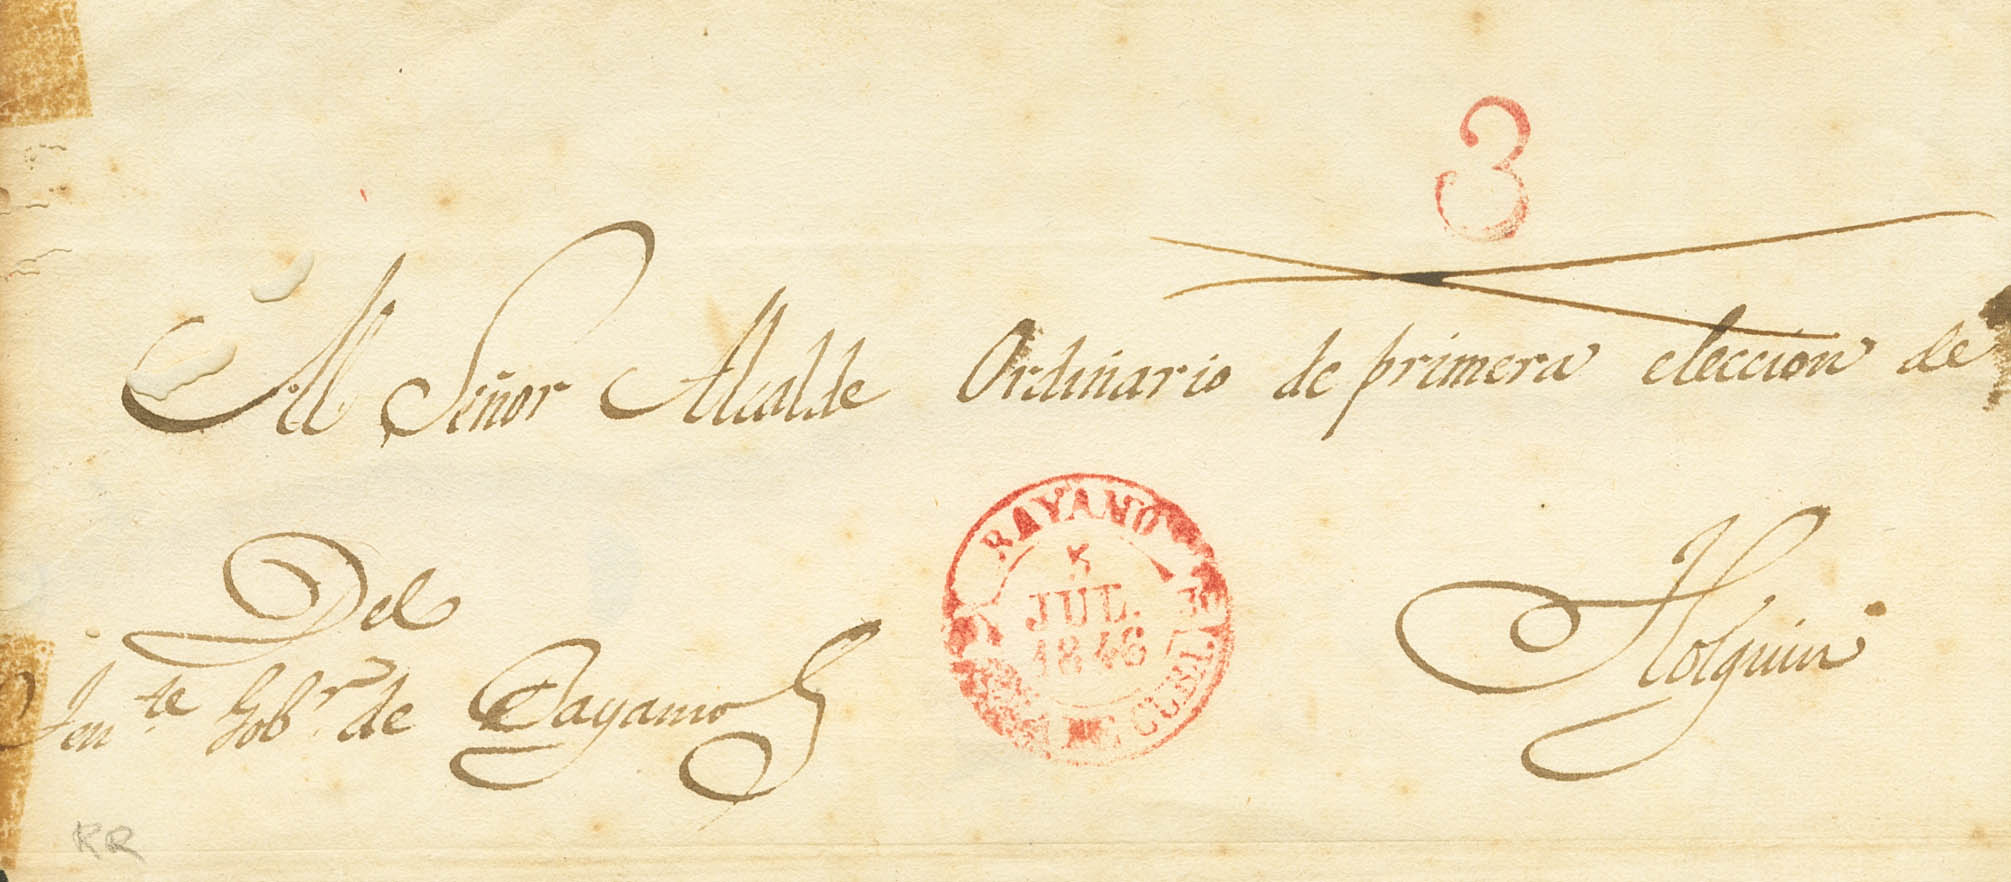 3
Al Señor Alcalde Ordinario de primera eleccion de
Holguin
Del
Ten.te Gob.r de Bayamo
BAYAMO
5
JUL.
1846
DE CUBA.
RR